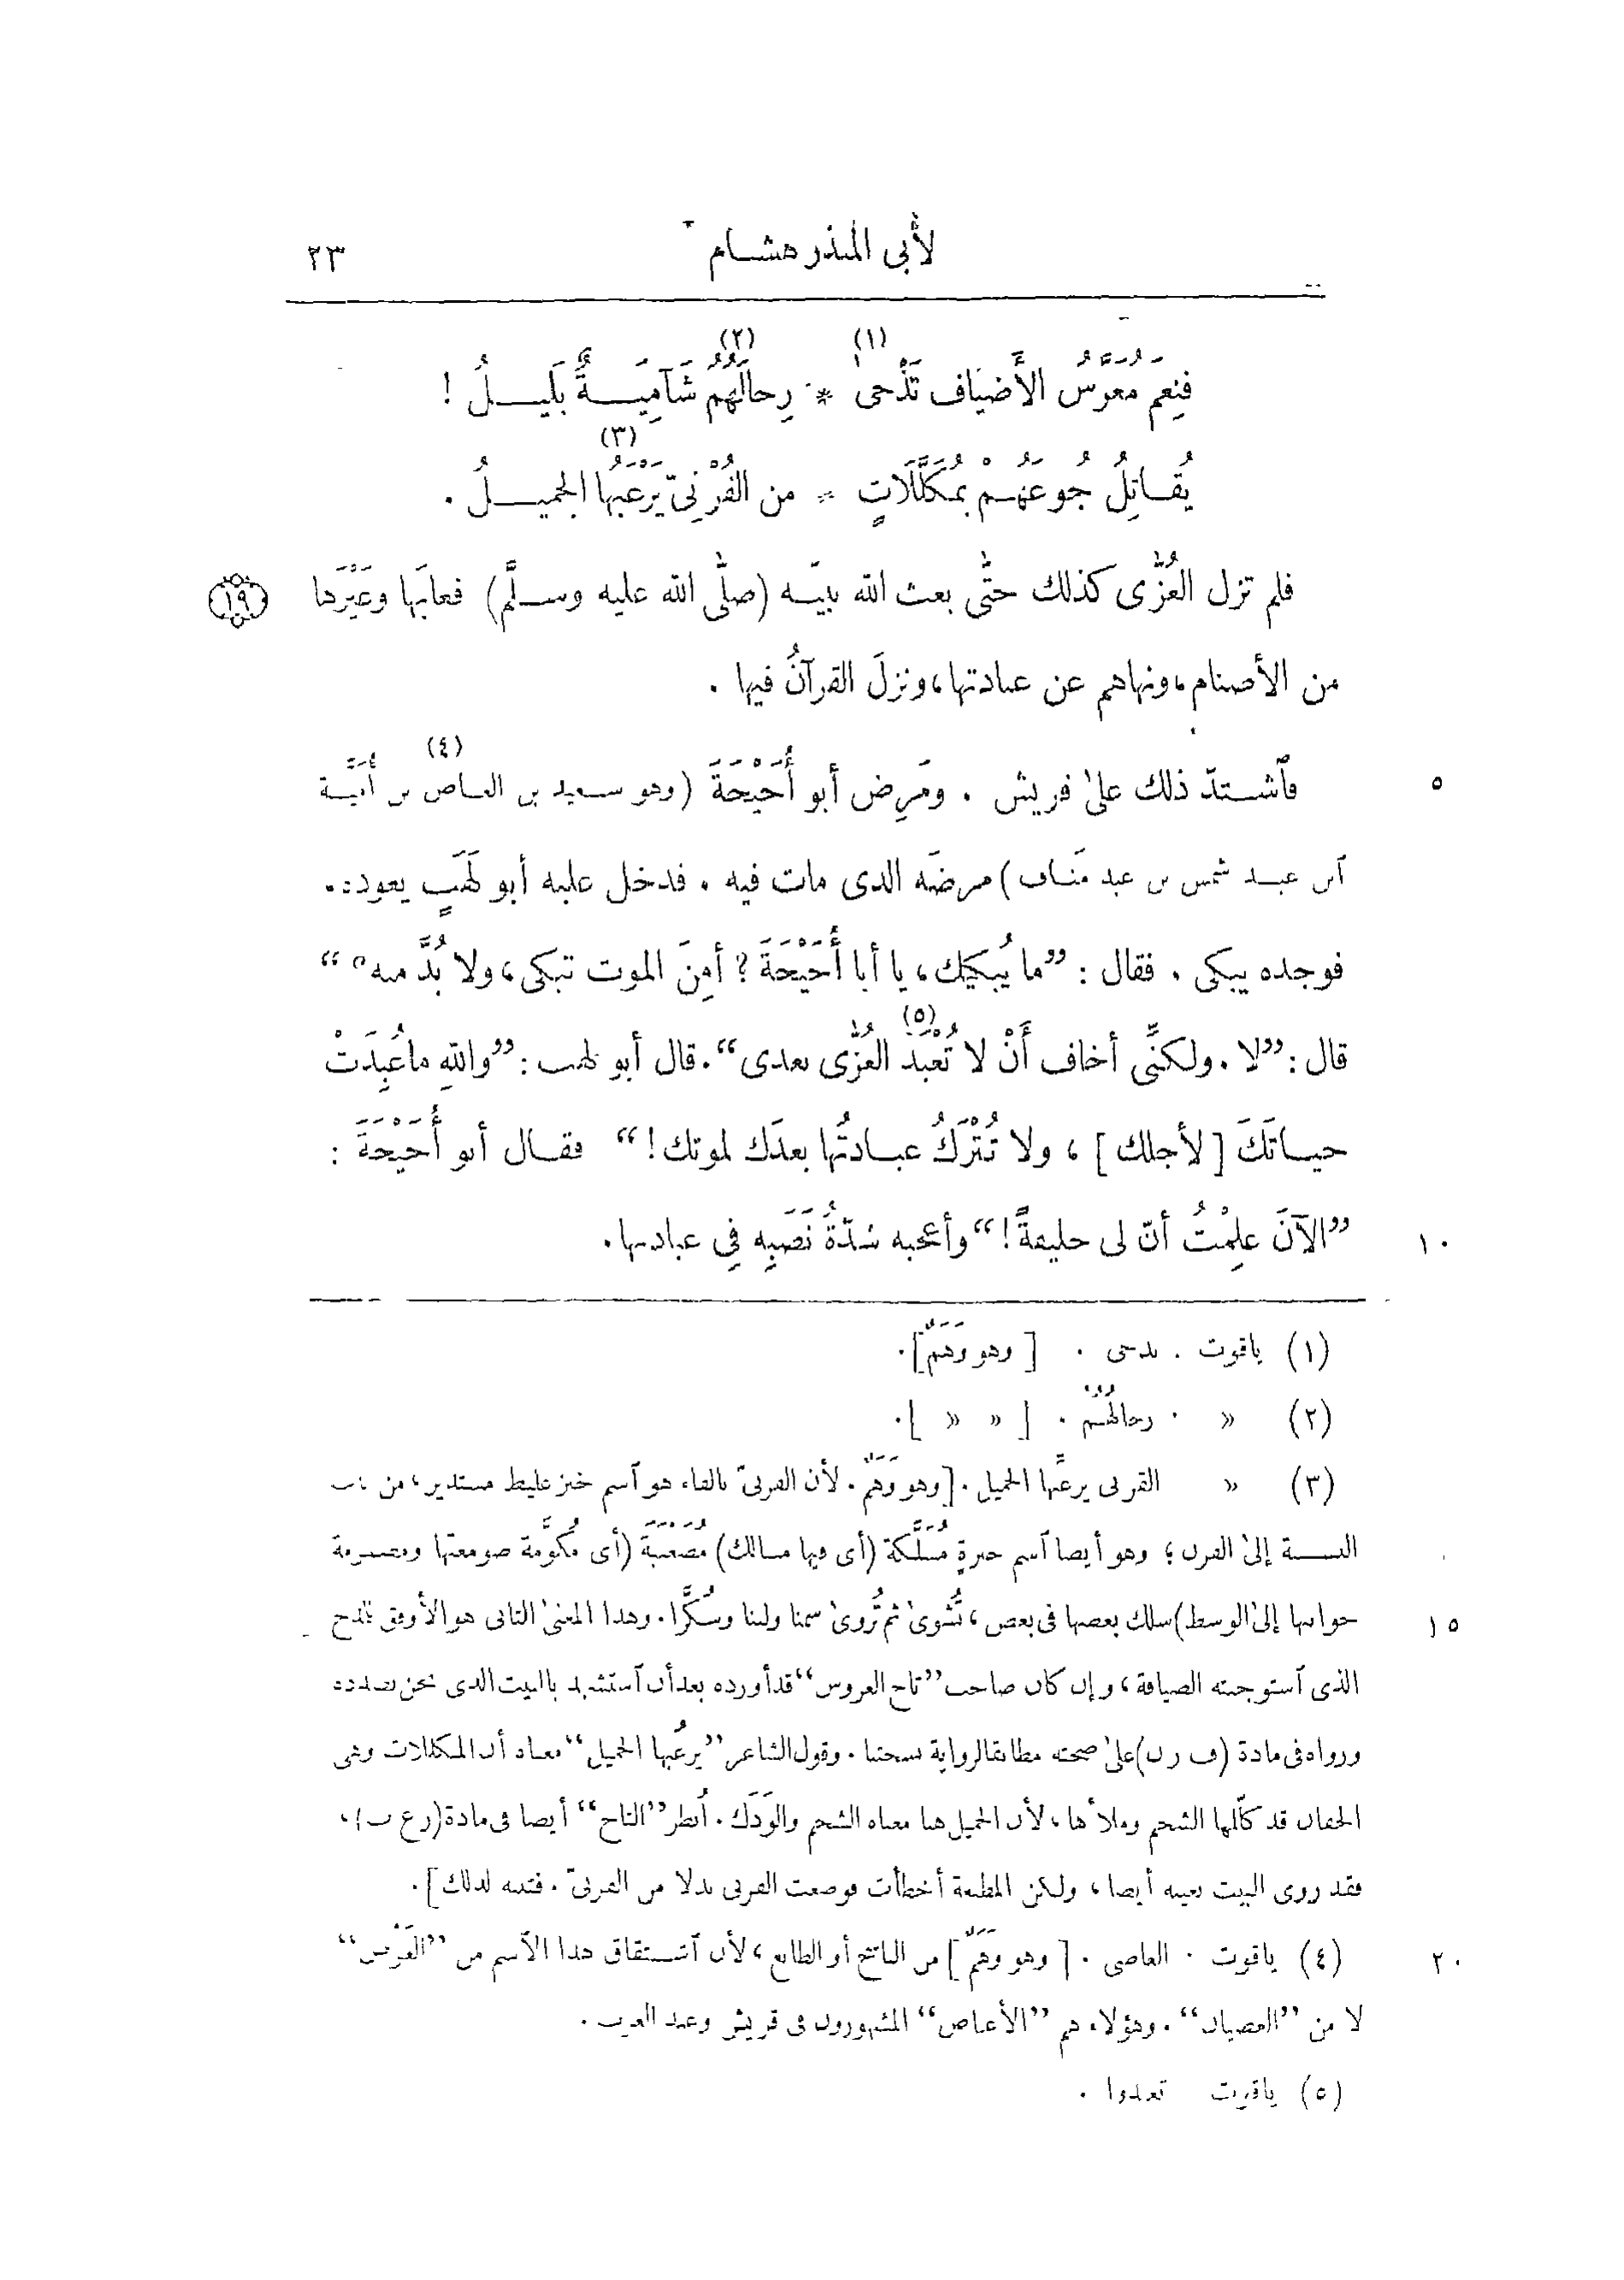 لأبى المنذر هشام ٢٣
فنِعمَ مُعَرَّسُ الأَضيَاف تَذْحى (١) * رِحالَهُمُ (٢) شَآمِيَةٌ بَلِيلُ !
يُقاتِلُ جُوعَهُمْ بمُكَلَّلَاتٍ * من الفُرْنِىّ يَرْعَبُهَا (٣) الجميلُ .
فلم تزل العُزَّى كذلك حتَّى بعث الله نبيَّه (صلَّى الله عليه وسلَّم) فعابَها وغيْرَها ١٩
من الأصنام، ونهاهم عن عبادتها، ونزلَ القرآنُ فيها .
فٱشتدّ ذلك علىٰ قريش . ومَرِض أبو أُحَيْحَةَ (وهو سعيد بن العاص (٤) بن أُمَيَّة ٥
ٱبن عبد شمس بن عبد مَناف) مرضَه الذى مات فيه . فدخل عليه أبو لَهَبٍ يعوده.
فوجده يبكى . فقال : ”ما يُبكيك، يا أبا أُحَيْحَةَ ؟ أمِنَ الموت تبكى، ولا بُدَّ منه؟“
قال : ”لا . ولكنِّى أخاف أَنْ لا تُعْبَدَ (٥) العُزَّى بعدى“. قال أبو لهب : ”واللهِ ما عُبِدَتْ
حياتَكَ [لأجلك] ، ولا تُتْرَكُ عبادتُها بعدَك لموتك !“ فقال أبو أُحَيْحَةَ :
”الآنَ علِمْتُ أنّ لى خليفةً !“ وأعجبه شدّةُ نَصَبِه فِى عبادتها. ١٠
(١) ياقوت . تدحى . [وهو وَهَمٌ].
(٢) » . رحالهُمُ . [ » » ].
(٣) » القرنى يرعَّبها الجميل . [وهو وَهَمٌ. لأن الفرنىّ بالفاء هو ٱسم خبز غليظ مستدير، من باب
النسبة إلىٰ الفرن؛ وهو أيضا ٱسم خبزةٍ مُسَلَّكة (أى فيها مسالك) مُصَعْنَبَة (أى مُكوَّمة صومعتها ومضمومة
جوانبها إلىٰ الوسط) سلك بعضها فى بعض، تُشوىٰ ثم تُروىٰ سمنا ولبنا وسُكَّرا. وهذا المعنىٰ الثانى هو الأوفق للمدح ١٥
الذى ٱستوجبته الضيافة، وإن كان صاحب ”تاج العروس“ قد أورده بعد أن ٱستشهد بالبيت الذى نحن بصدده
ورواه فى مادة (ف ر ن) علىٰ صحته مطابقا لرواية نسختنا. وقول الشاعر ”يرعَبها الجميل“ معناه أن المكللات وهى
الجفان قد كلّلها الشحم وملأها، لأن الجميل هنا معناه الشحم والوَدَك. ٱنظر ”التاج“ أيضا فى مادة (ر ع ب)،
فقد روى البيت بعينه أيضا، ولكن المطبعة أخطأت فوضعت القرنى بدلا من الفرنىّ. فتنبه لذلك].
(٤) ياقوت . العاصى . [وهو وَهَمٌ] من الناسخ أو الطابع، لأن ٱشتقاق هذا الٱسم من ”العَوْص“ ٢٠
لا من ”العصيان“. وهؤلاء هم ”الأعاص“ المشهورون فى قريش وعند العرب.
(٥) ياقوت تعبدوا .